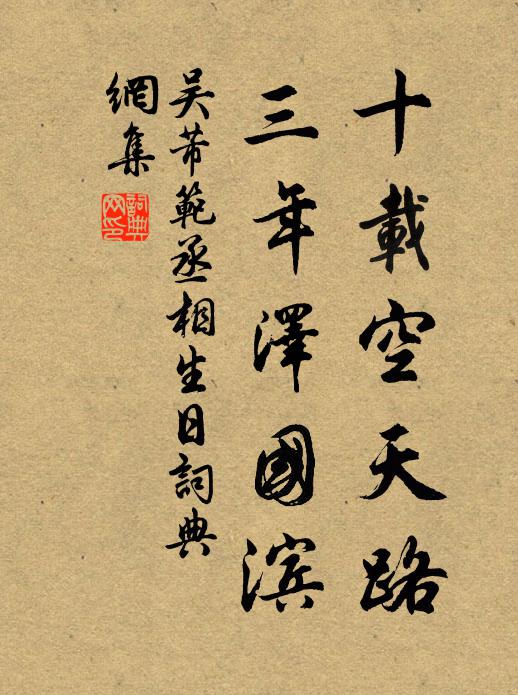 十載空天路
三年澤國滨
吴芾範丞相生日詞典
網集
詞典
网印